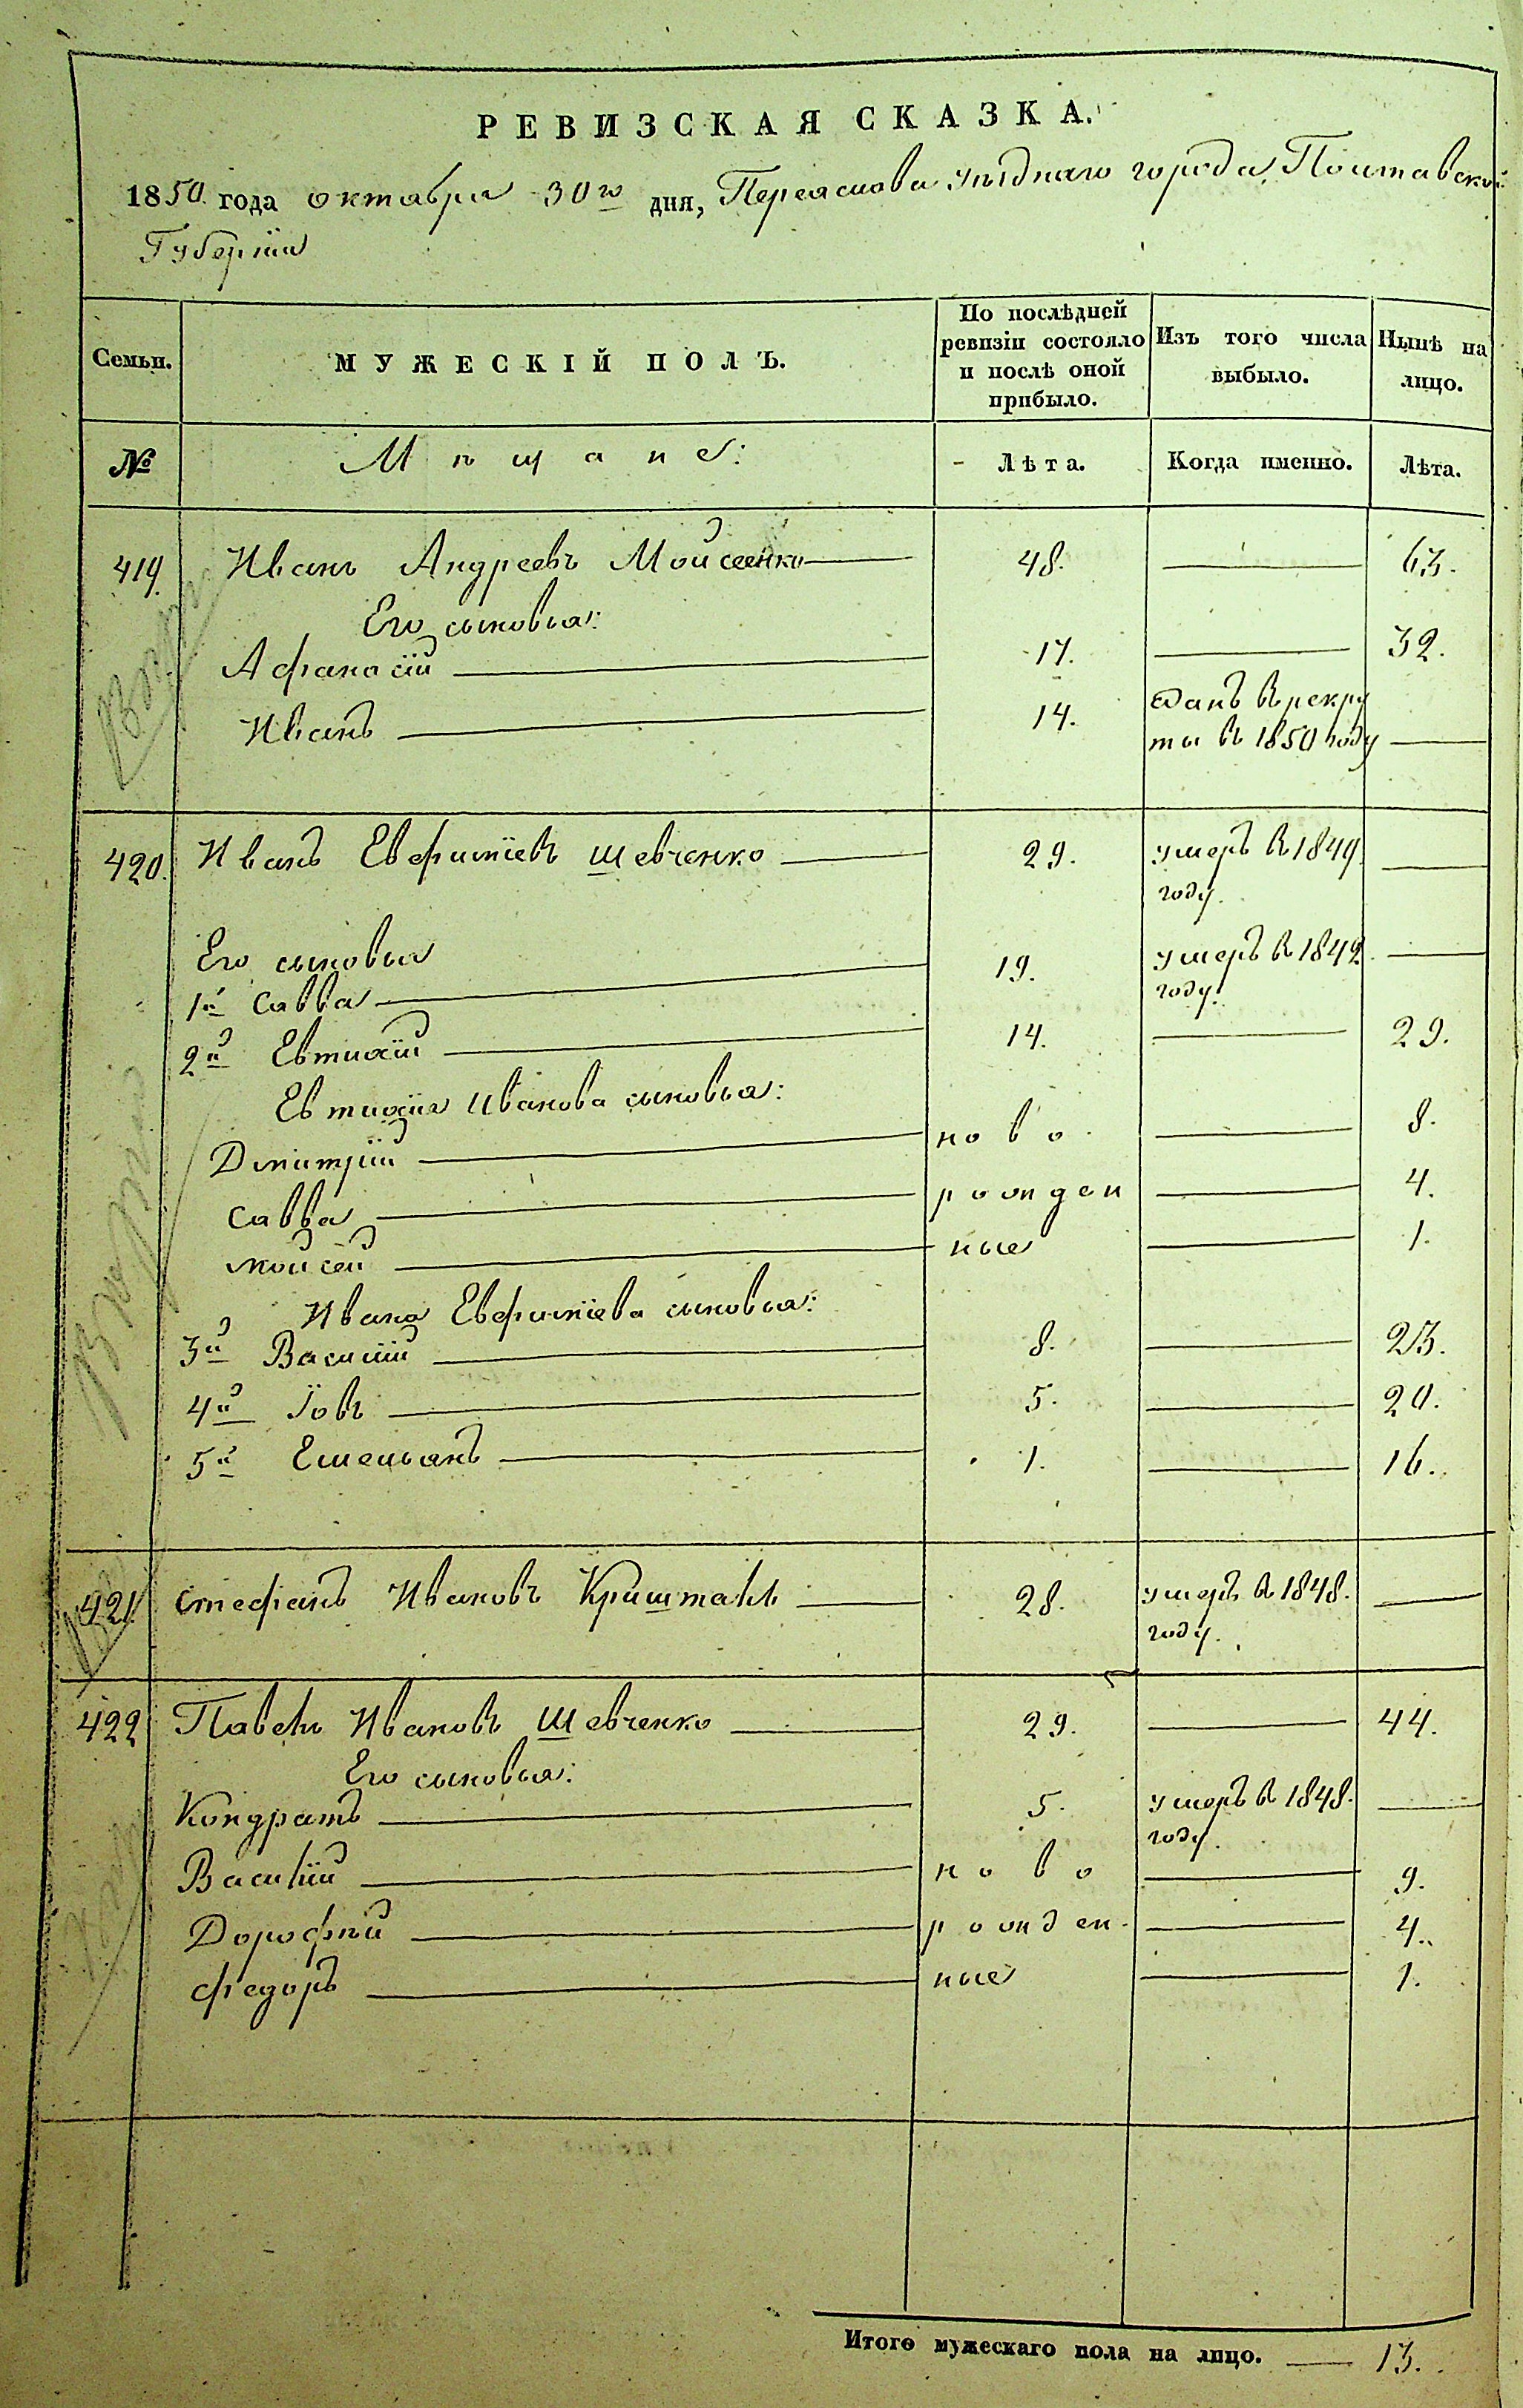 РЕВИЗСКАЯ СКАЗКА.
1850 года октября 30го дня, Переяслова уѣзднаго города, Полтавской
Губерніи
Семьи. МУЖЕСКІЙ ПОЛЪ. По послѣдней ревизіи состояло и послѣ оной прибыло. Изъ того числа выбыло. Нынѣ на лицо.
№ Мѣщане: Лѣта. Когда именно. Лѣта.
419 Иванъ Андреевъ Мойсеенко 48. 63.
Его сыновья:
Афанасій 17. 32.
Иванъ 14. Отданъ въ рекру
ты въ 1850 году
420. Иванъ Евфиміевъ Шевченко 29. умеръ в 1849
году.
Его сыновья
1й Савва 19. умеръ в 1842
году.
2й Евтихій 14. 29.
Евтихія Иванова сыновья:
Дмитрій ново 8.
Савва рожден 4.
Мойсей ные 1.
Ивана Евфиміева сыновья:
3й Василій 8. 23.
4й Іовъ 5. 20.
5й Емельянъ 1. 16.
421 Стефанъ Ивановъ Кришталь 28. умеръ в 1848.
году.
422 Павелъ Ивановъ Шевченко 29. 44.
Его сыновья:
Кондратъ 5. умеръ в 1848.
году.
Василій ново 9.
Дорофѣй рожден 4.
Федоръ ные 1.
Итого мужескаго пола на лицо. 13.